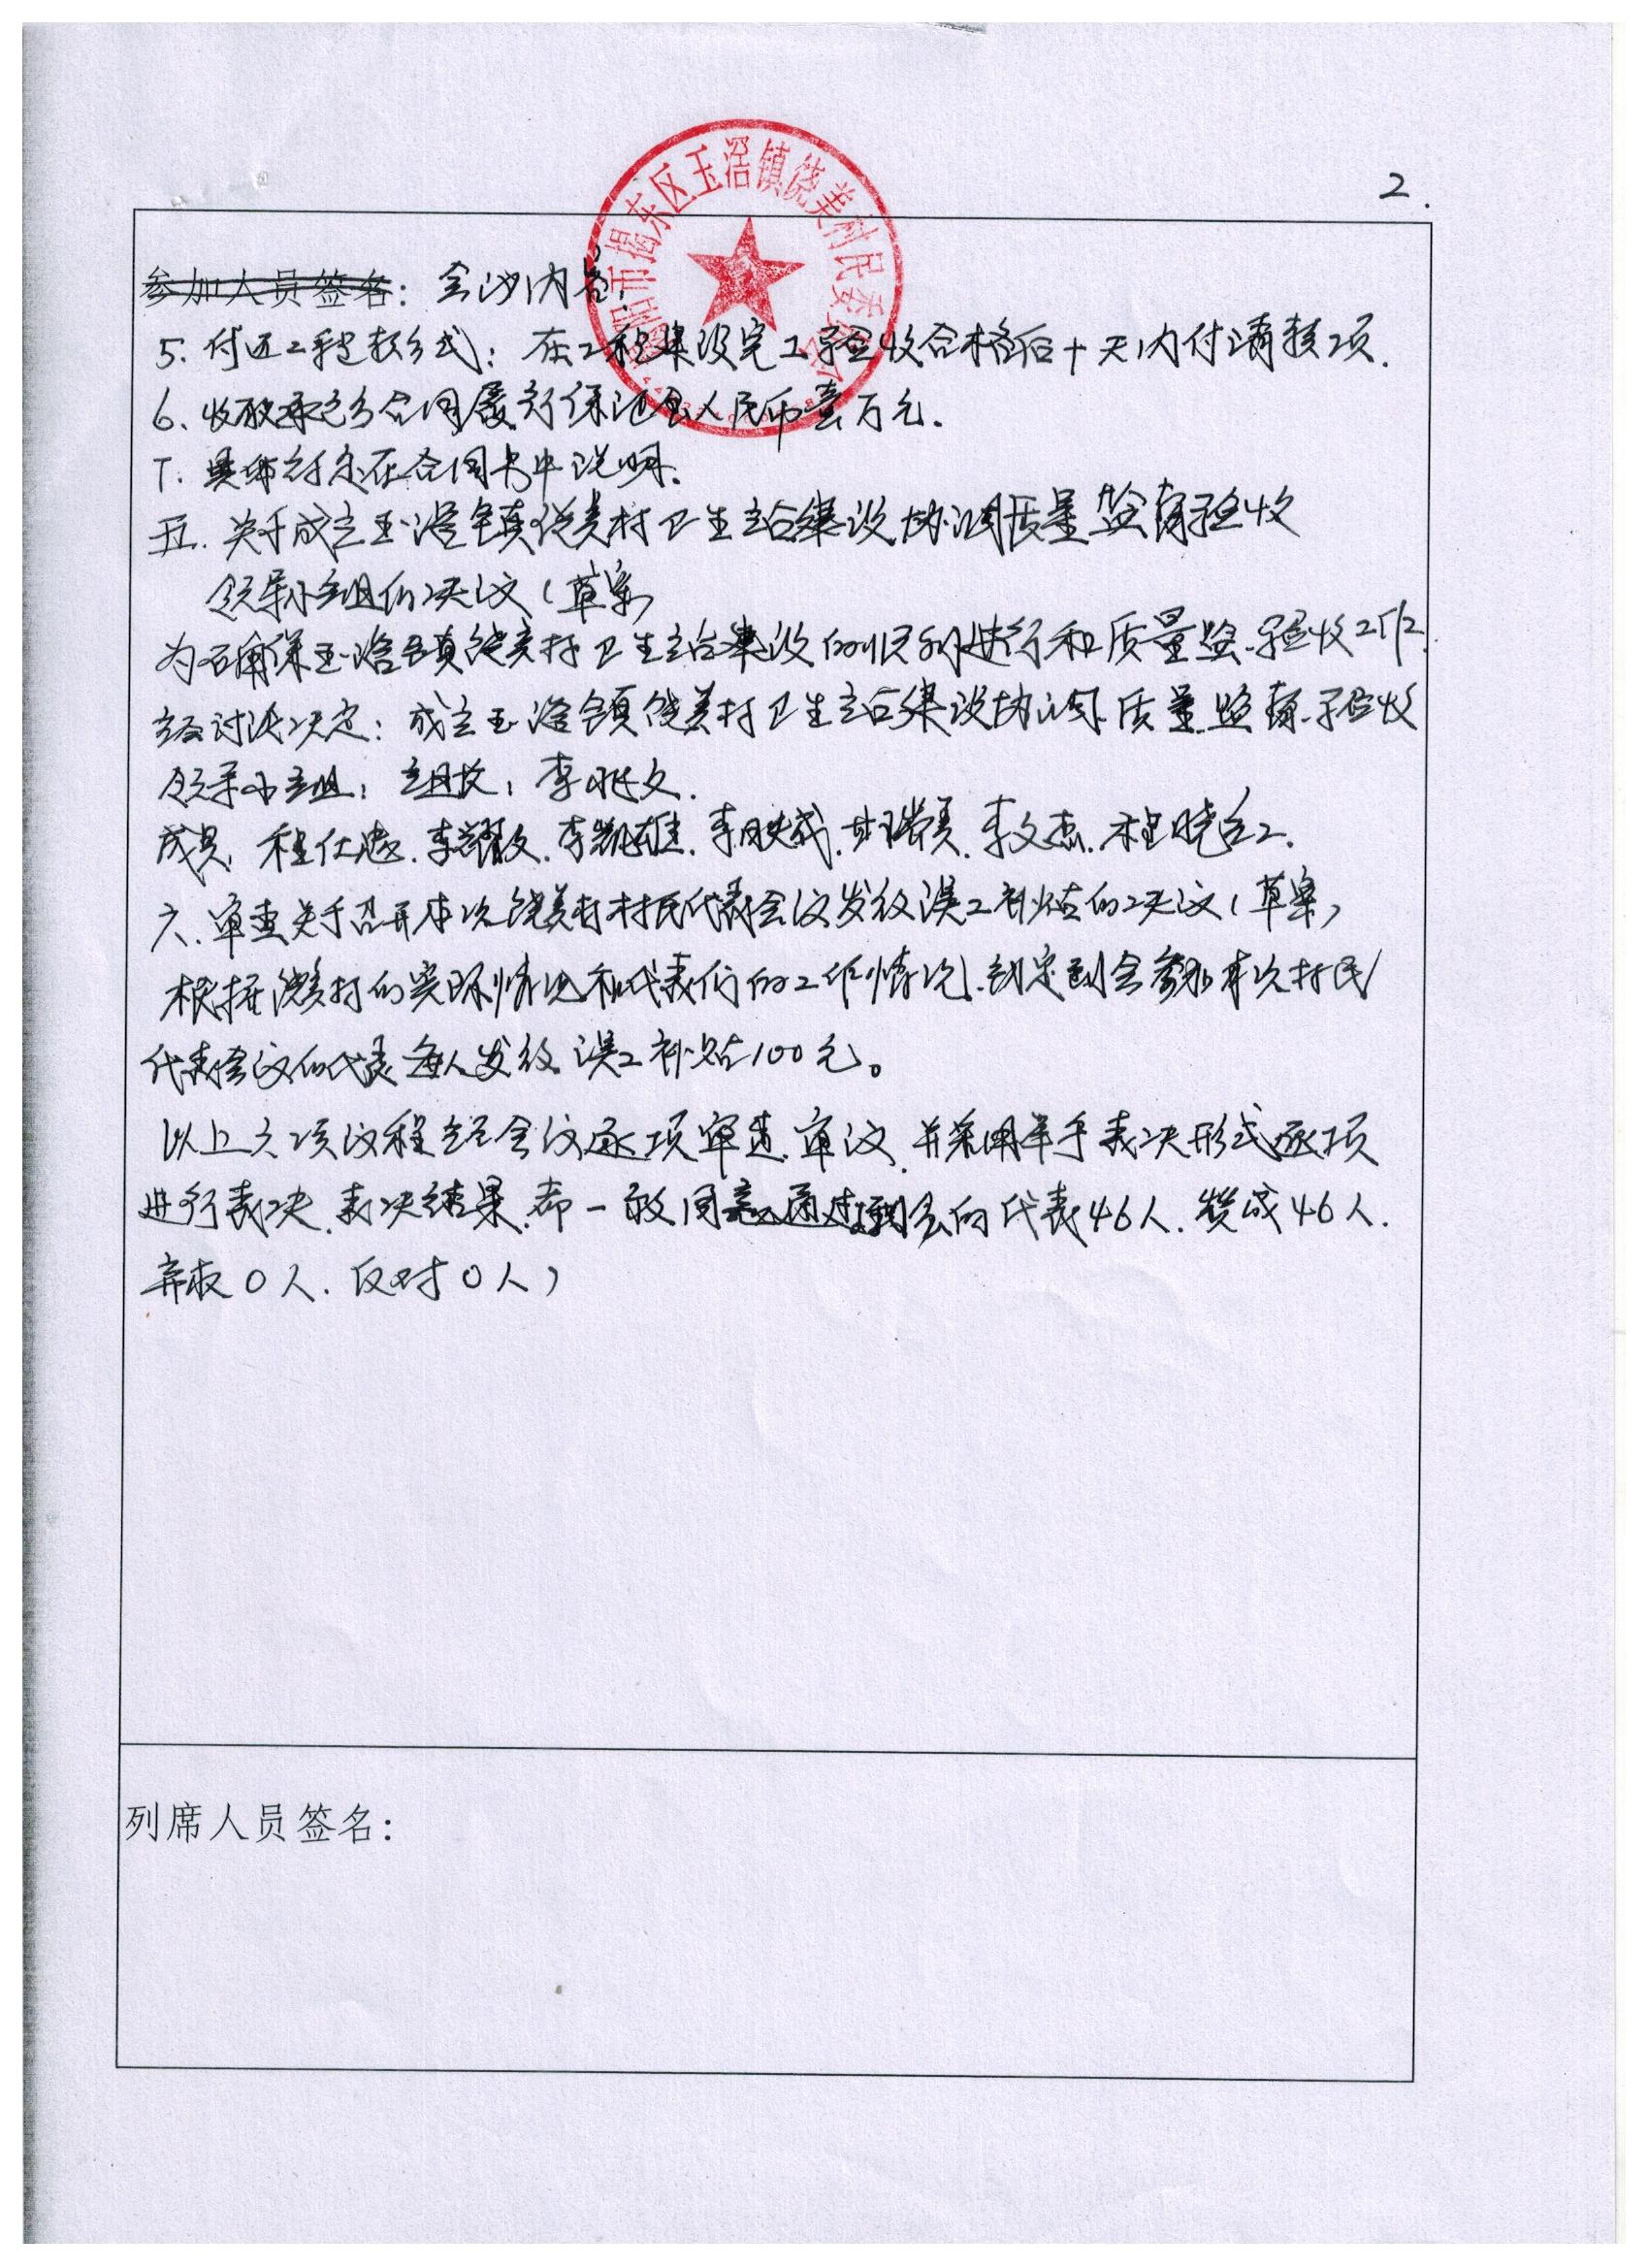 2.
揭阳市揭东区玉滘镇饶美村民委员会
参加人员签名：会议内容：
5. 付还工程款方式：在工程建设完工验收合格后十天内付清款项.
6. 收取承包方合同履行保证金人民币壹万元.
7. 具体行为在合同书中说明.
五. 关于成立玉滘镇饶美村卫生站建设协调质量监督验收
领导小组的决议（草案）
为确保玉滘镇饶美村卫生站建设的顺利进行和质量监.验收工作.
经讨论决定：成立玉滘镇饶美村卫生站建设协调.质量监督.验收
领导小组：组长：李兆文.
成员：程仕忠.李耀文.李凯雄.李映成.林瑞美.李文杰.程晓红.
六.审查关于召开本次饶美村村民代表会议发给误工补贴的决议（草案）
根据饶美村的实际情况和代表们的工作情况.制定到会参加本次村民
代表会议的代表每人发给误工补贴100元。
以上六项议程经会议逐项审查.审议.并采用举手表决形式逐项
进行表决.表决结果.都一致同意通过(到会的代表46人.赞成46人.
弃权0人.反对0人）
列席人员签名：